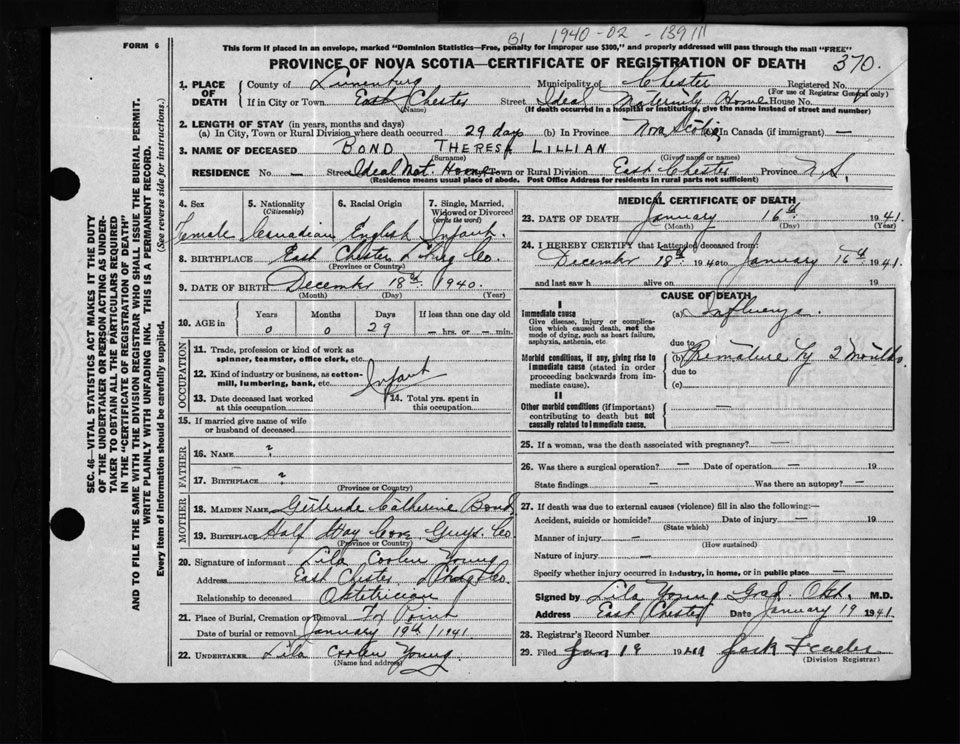 B1 1940-02-139111
FORM 6
This form if placed in an envelope, marked "Dominion Statistics—Free, penalty for improper use $300," and properly addressed will pass through the mail "FREE"
PROVINCE OF NOVA SCOTIA—CERTIFICATE OF REGISTRATION OF DEATH 370.
1. PLACE OF DEATH
County of Lunenburg Municipality of Chester Registered No.
(For use of Registrar General only)
If in City or Town East Chester Street Ideal Maternity Home House No.
(Name) (If death occurred in a hospital or institution, give the name instead of street and number)
2. LENGTH OF STAY (in years, months and days)
(a) In City, Town or Rural Division where death occurred 29 days (b) In Province Nova Scotia In Canada (if immigrant) —
3. NAME OF DECEASED BOND THERESA LILLIAN
(Surname) (Given name or names)
RESIDENCE No. — Street Ideal Mat. Home Town or Rural Division East Chester Province N.S.
(Residence means usual place of abode. Post Office Address for residents in rural parts not sufficient)
4. Sex
Female
5. Nationality
(Citizenship)
Canadian
6. Racial Origin
English
7. Single, Married, Widowed or Divorced
(write the word)
Infant.
8. BIRTHPLACE East Chester L'burg Co.
(Province or Country)
9. DATE OF BIRTH December 18th 1940.
(Month) (Day) (Year)
10. AGE in
Years Months Days If less than one day
0 0 29 — hrs. or — min.
OCCUPATION
11. Trade, profession or kind of work as spinner, teamster, office clerk, etc.
12. Kind of industry or business, as cotton-mill, lumbering, bank, etc. Infant
13. Date deceased last worked at this occupation
14. Total yrs. spent in this occupation
15. If married give name of wife or husband of deceased
FATHER
16. NAME ?
17. BIRTHPLACE ?
(Province or Country)
MOTHER
18. MAIDEN NAME Gertrude Catherine Bond
19. BIRTHPLACE Half Way Cove Guys. Co
(Province or Country)
20. Signature of informant Lila Coolen Young
Address East Chester Co.
Relationship to deceased Obstetrician
21. Place of Burial, Cremation or Removal Fx Point
Date of burial or removal January 19th/1941
22. UNDERTAKER Lila Coolen Young
(Name and address)
MEDICAL CERTIFICATE OF DEATH
23. DATE OF DEATH January 16th 1941.
(Month) (Day) (Year)
24. I HEREBY CERTIFY that I attended deceased from:
December 18th 1940 to January 16th 1941.
and last saw h alive on 19
CAUSE OF DEATH
I
Immediate cause
Give disease, injury or complication which caused death, not the mode of dying, such as heart failure, asphyxia, asthenia, etc.
(a)
due to
Morbid conditions, if any, giving rise to immediate cause (stated in order proceeding backwards from immediate cause).
(b) Premature by 2 months
due to
(c)
II
Other morbid conditions (if important) contributing to death but not causally related to immediate cause.
—
25. If a woman, was the death associated with pregnancy? —
26. Was there a surgical operation? — Date of operation — 19
State findings — Was there an autopsy? —
27. If death was due to external causes (violence) fill in also the following:—
Accident, suicide or homicide? Date of injury — 19
(State which)
Manner of injury —
(How sustained)
Nature of injury —
Specify whether injury occurred in industry, in home, or in public place —
Signed by Lila Young Grad. Obst. M.D.
Address East Chester Date January 19 1941.
28. Registrar's Record Number
29. Filed Jan 19 1941 Jack
(Division Registrar)
SEC. 46—VITAL STATISTICS ACT MAKES IT THE DUTY
OF THE UNDERTAKER OR PERSON ACTING AS UNDER-
TAKER TO OBTAIN ALL THE PARTICULARS REQUIRED
IN THE "CERTIFICATE OF REGISTRATION OF DEATH"
AND TO FILE THE SAME WITH THE DIVISION REGISTRAR WHO SHALL ISSUE THE BURIAL PERMIT.
WRITE PLAINLY WITH UNFADING INK. THIS IS A PERMANENT RECORD.
Every item of information should be carefully supplied. (See reverse side for instructions.)